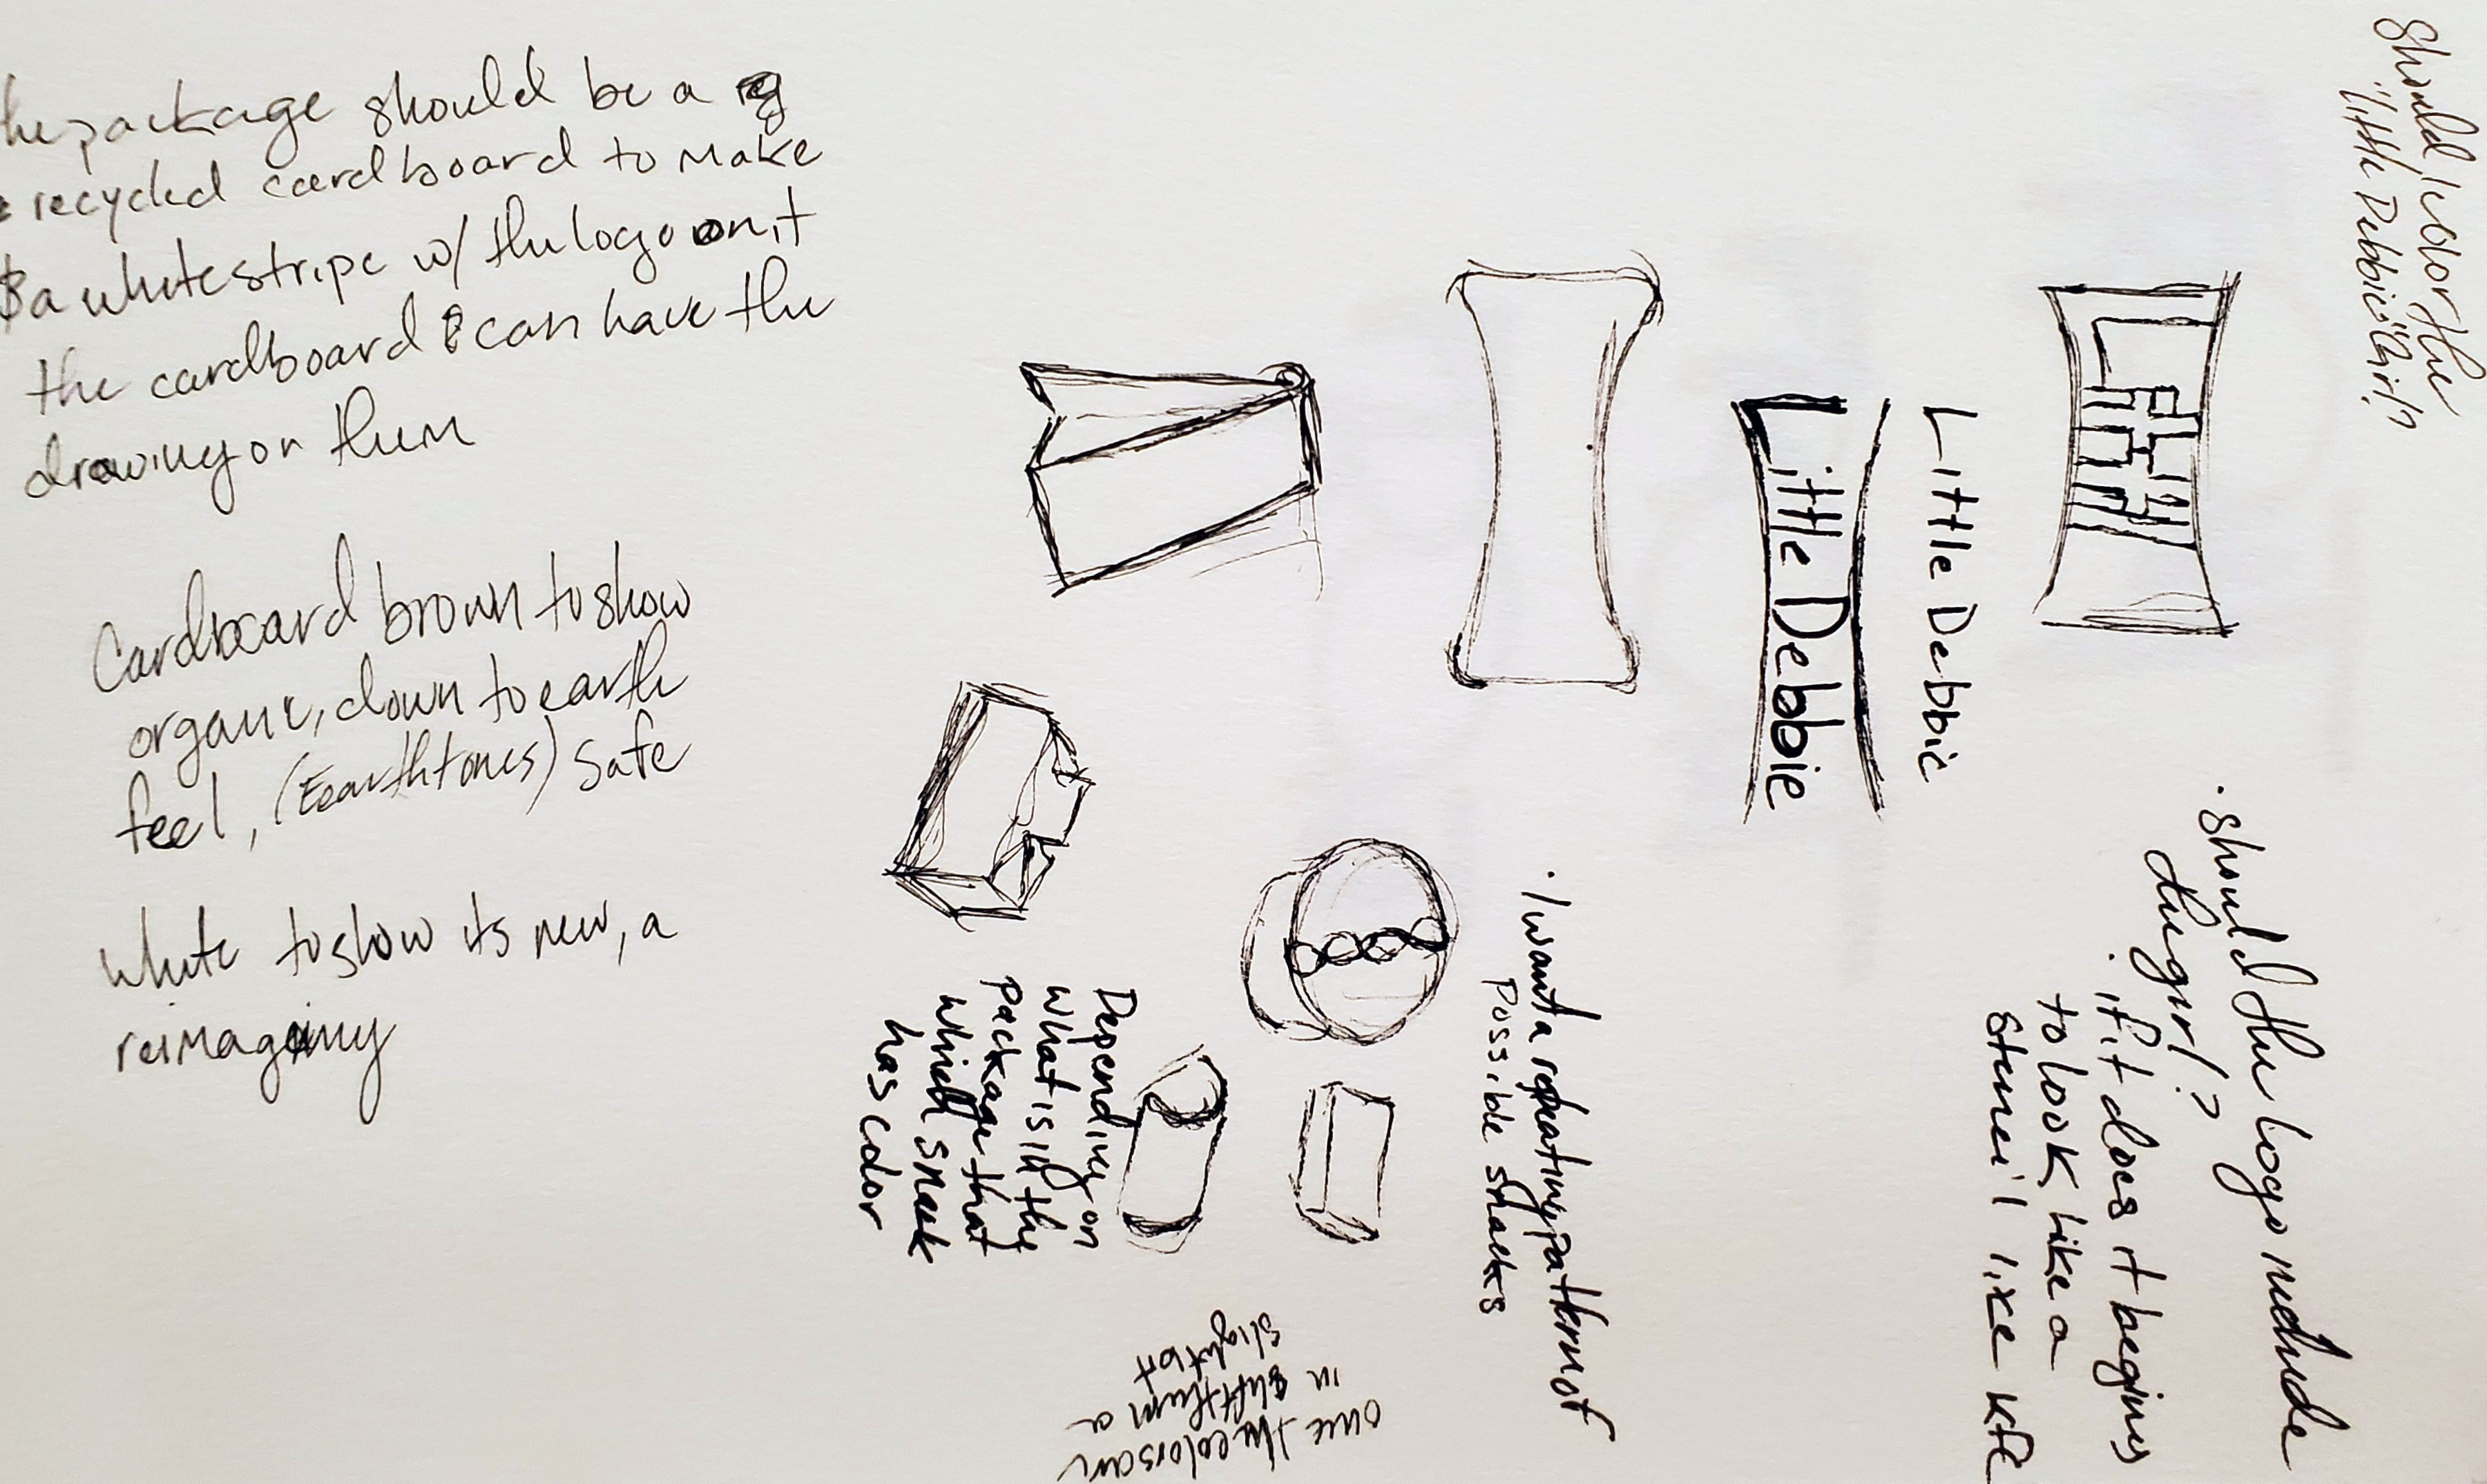 he package should be a
recycled cardboard to make
& a white stripe w/ the logo on it
the cardboard & can have the
drawing on them
Cardboard brown to show
organic, down to earth
feel, (Earthtones) safe
White to show its new, a
reimagining
Should I color the
"Little Debbie" Girl?
Little Debbie
Little Debbie
• Should the logo include
the girl?
• if it does it begins
to look like a
stencil like KFC
• I want a repeating pattern of
Possible snacks
Depending on
what is in the
package that
which snack
has color
once the colors are
in shift them a
slight bit